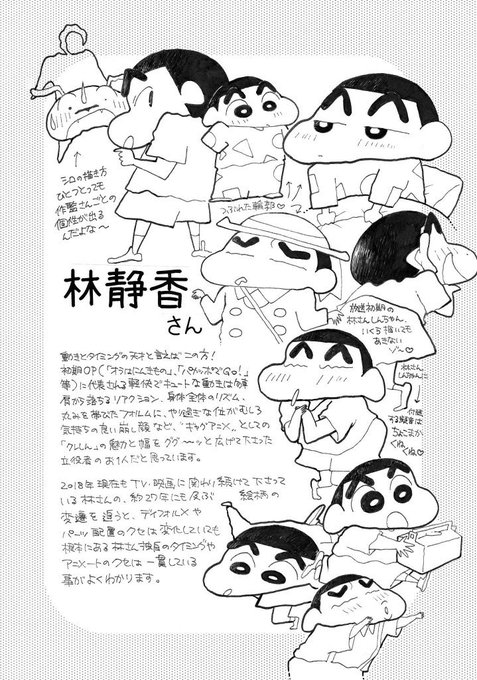 シロの描き方
ひとつとっても
作監さんごとの
個性が出る
んだよな〜
つぶれた輪郭♡
林静香
さん
放送初期の
林さんしんちゃん、
いくら描いても
あきない
ゾ〜♡
林さん
しんちゃんに
付随する擬音は
ちょこまか
くねくね♡
動きとタイミングの天才と言えばこの方!
初期OP(「オラはにんきもの」、「パカッポでGo!」
等)に代表される軽快でキュートな動きは勿論
肩から落ちるリアクション、身体全体のリズム、
丸みを帯びたフォルムに、やり過ぎな位がむしろ
気持ちの良い崩し顔など、"ギャグアニメ"としての
「クレしん」の魅力と幅をググ〜ッと広げて下さった
立役者のお1人だと思っています。
2018年現在もTV・映画に関わり続けて下さって
いる林さんの、約27年にも及ぶ 絵柄の
変遷を追うと、ディフォルメや
パーツ配置のクセは変化していても
根本にある林さん独自のタイミングや
アニメートのクセは一貫している
事がよくわかります。